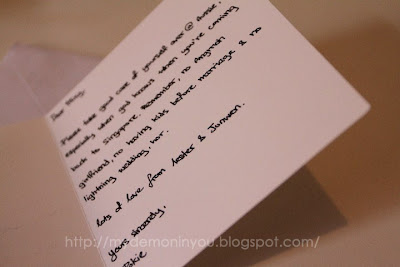 Please take good care of yourself over @ Aussie,
especially when god knows when you're coming
back to Singapore. Remember, no Angmoh
girlfriend, no having kids before marriage & no
lightning wedding, hor.
Lots of love from Lester & Junwen.
Yours sincerely,
http://mrdemoninyou.blogspot.com/